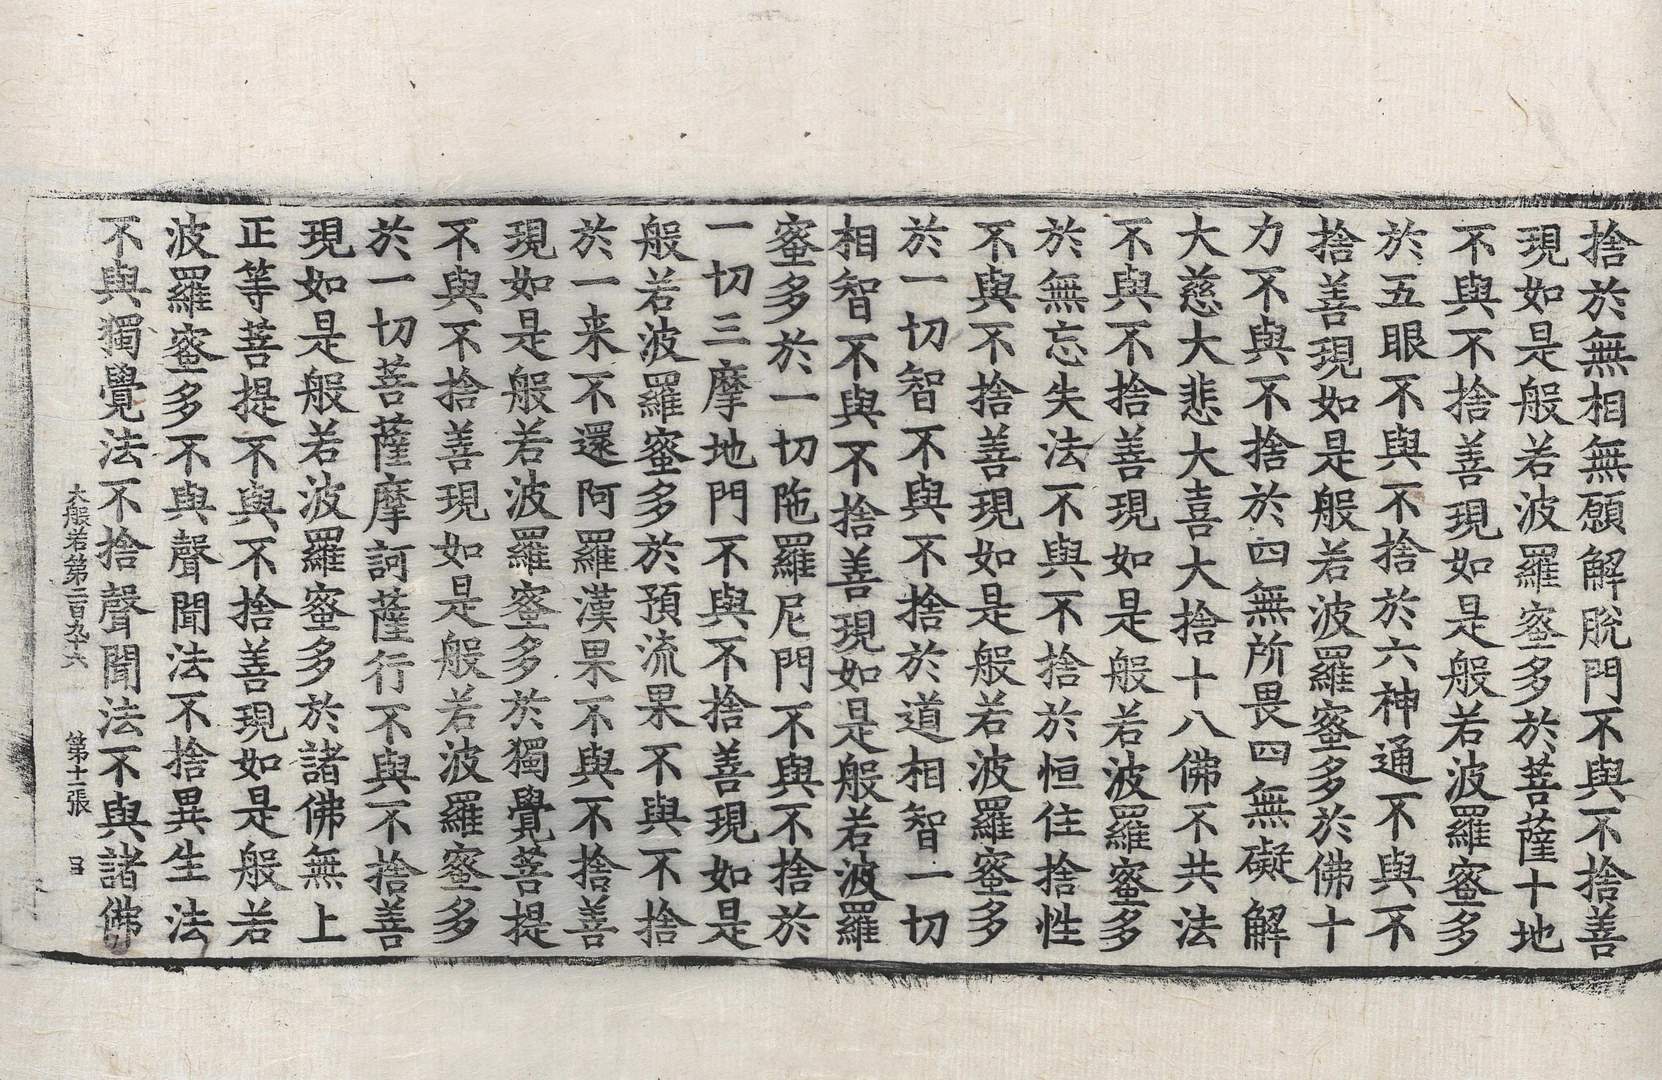 捨於無相無願解脫門不與不捨善
現如是般若波羅蜜多於菩薩十地
不與不捨善現如是般若波羅蜜多
於五眼不與不捨於六神通不與不
捨善現如是般若波羅蜜多於佛十
力不與不捨於四無所畏四無礙解
大慈大悲大喜大捨十八佛不共法
不與不捨善現如是般若波羅蜜多
於無忘失法不與不捨於恒住捨性
不與不捨善現如是般若波羅蜜多
於一切智不與不捨於道相智一切
相智不與不捨善現如是般若波羅
蜜多於一切陁羅尼門不與不捨於
一切三摩地門不與不捨善現如是
般若波羅蜜多於預流果不與不捨
於一来不還阿羅漢果不與不捨善
現如是般若波羅蜜多於獨覺菩提
不與不捨善現如是般若波羅蜜多
於一切菩薩摩訶薩行不與不捨善
現如是般若波羅蜜多於諸佛無上
正等菩提不與不捨善現如是般若
波羅蜜多不與聲聞法不捨異生法
不與獨覺法不捨聲聞法不與諸佛
大般若第二百九十六 第十一張